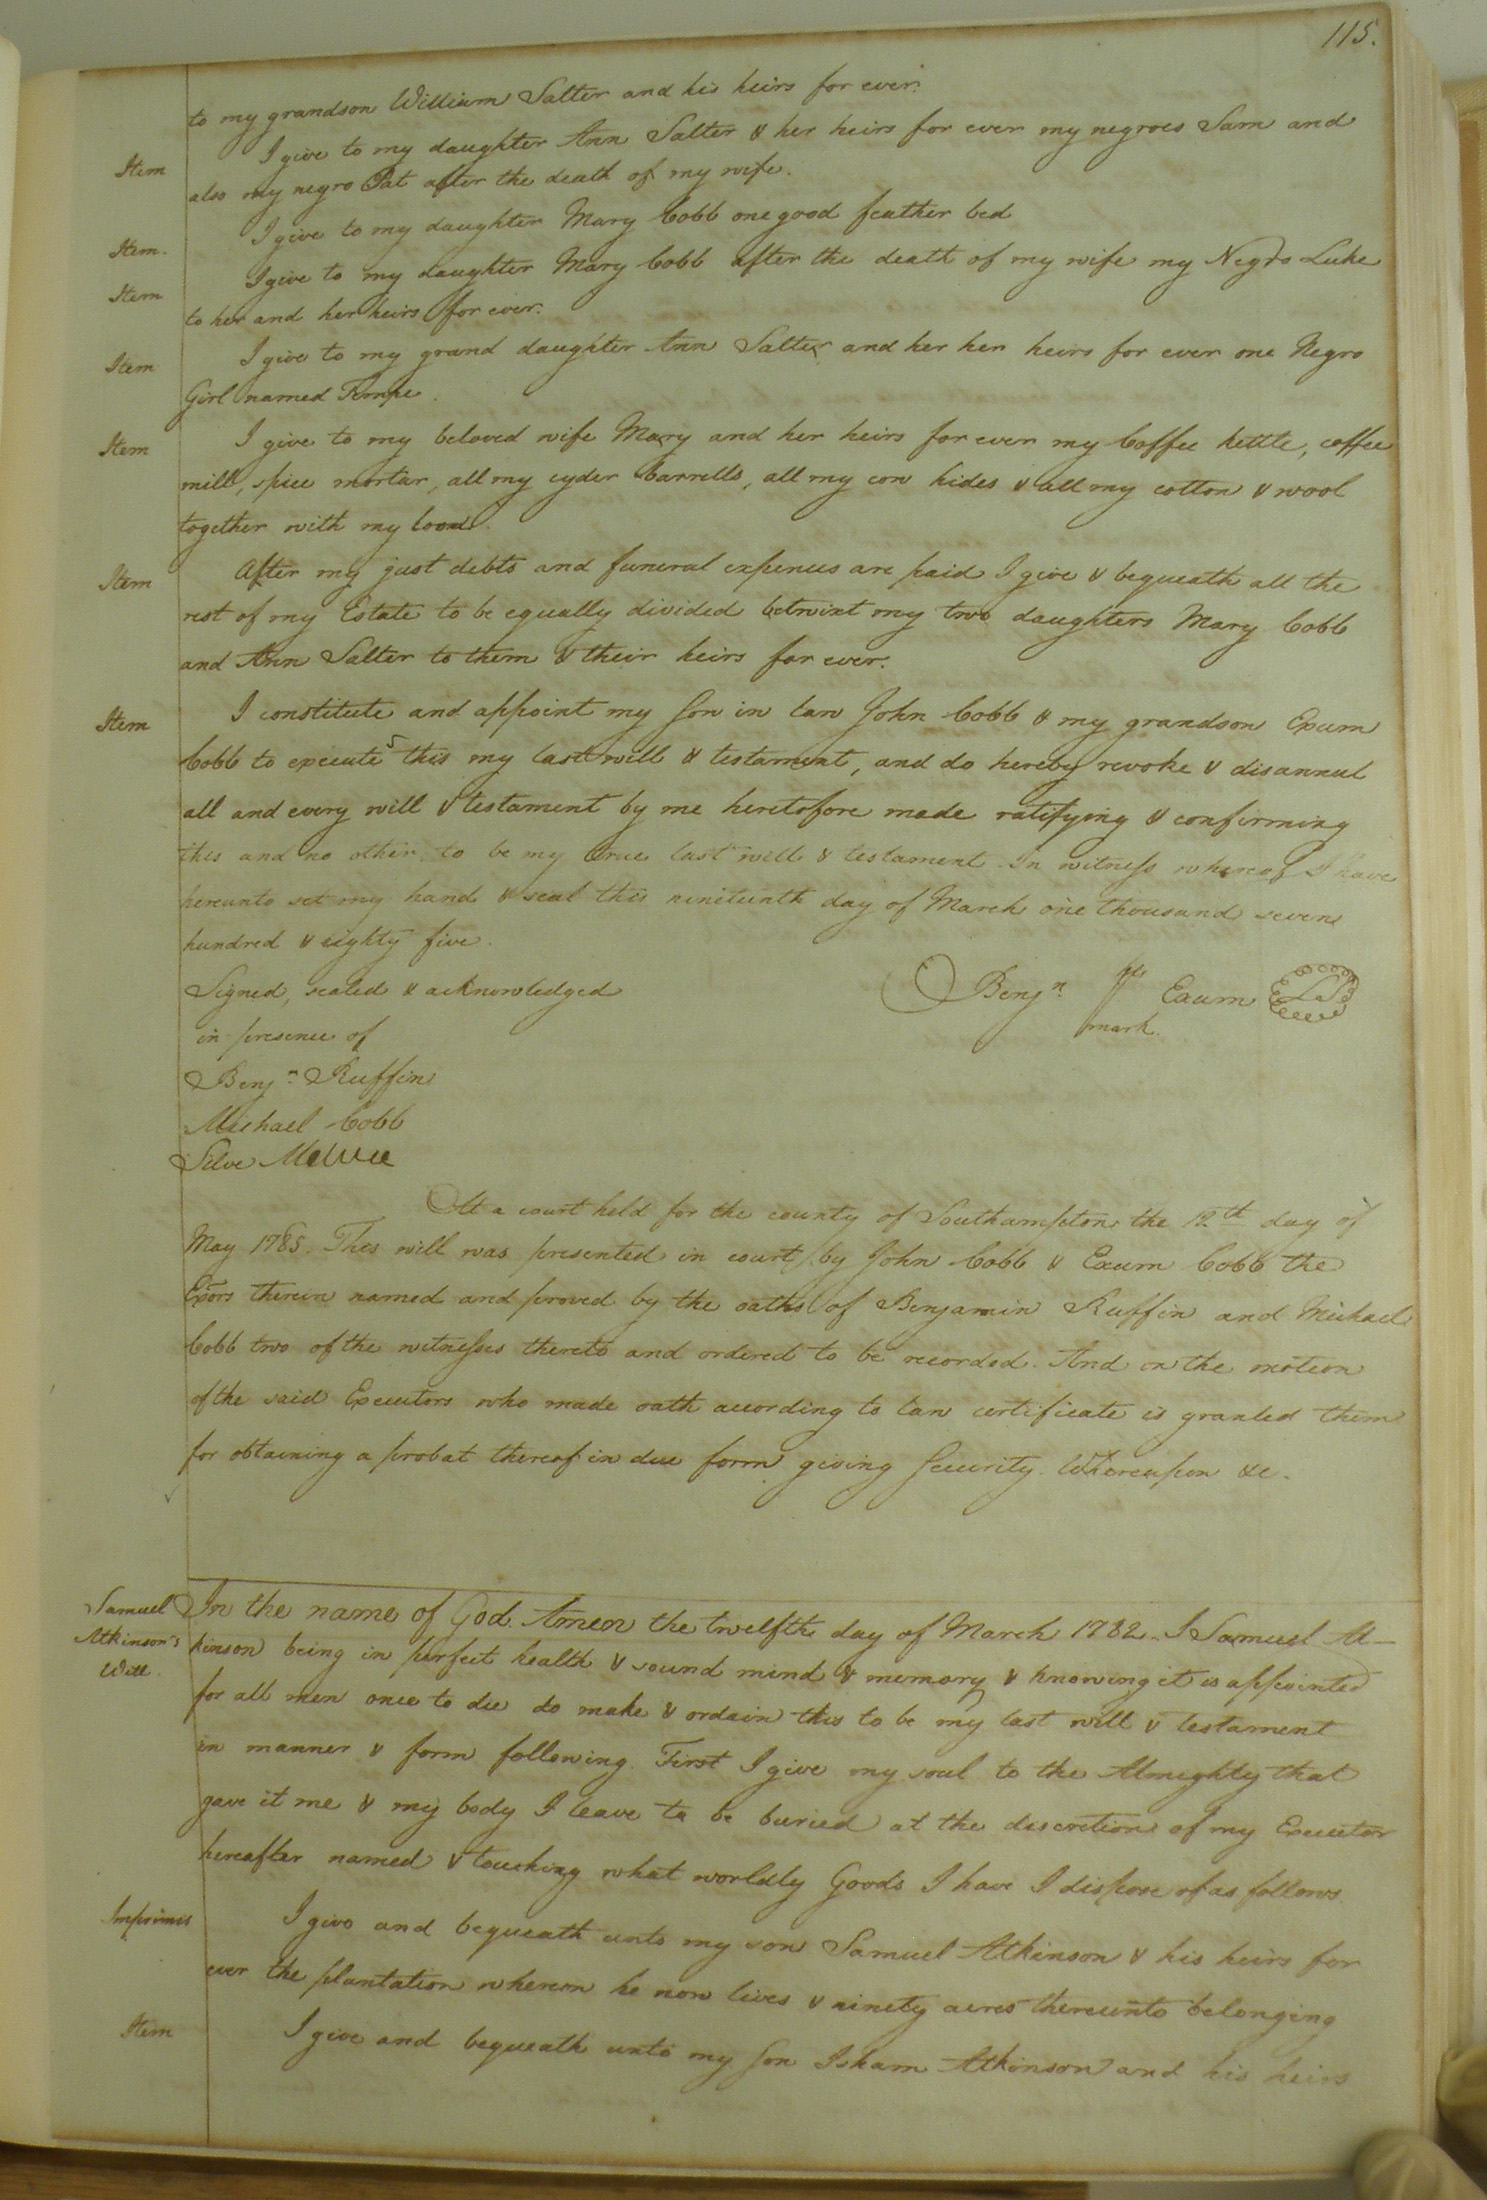 115.
to my grandson William Salter and his heirs for ever.
Item I give to my daughter Ann Salter & her heirs for ever my negroes Sam and
also my negro Pat after the death of my wife.
Item. I give to my daughter Mary Cobb one good feather bed
Item I give to my daughter Mary Cobb after the death of my wife my Negro Luke
to her and her heirs for ever.
Item I give to my grand daughter Ann Salter and her her heirs for ever one Negro
Girl named Tempe.
Item I give to my beloved wife Mary and her heirs for ever my Coffee kettle, coffee
mill, spice mortar, all my cyder barrells, all my cow hides & all my cotton & wool
together with my loom.
Item After my just debts and funeral expences are paid I give & bequeath all the
rest of my Estate to be equally divided betwixt my two daughters Mary Cobb
and Ann Salter to them & their heirs for ever.
Item I constitute and appoint my Son in law John Cobb & my grandson Exum
Cobb to execute this my last will & testament, and do hereby revoke & disannul
all and every will & testament by me heretofore made ratifying & confirming
this and no other to be my true last will & testament. In witness whereof I have
hereunto set my hand & seal this ninteenth day of March one thousand seven
hundred & eighty five.
Signed, sealed & acknowledged
in presence of
Benjn. Exum LS
mark.
Benjn. Ruffin
Michael Cobb
Silve
At a court held for the county of Southampton the 12th day of
May 1785. This will was presented in court by John Cobb & Exum Cobb the
Exors therein named and proved by the oaths of Benjamin Ruffin and Michael
Cobb two of the witnesses thereto and ordered to be recorded. And on the motion
of the said Executors who made oath according to law certificate is granted them
for obtaining a probat thereof in due form giving Security. Whereupon &c.
Samuel Atkinson's Will.
In the name of God Amen the twelfth day of March 1782. I Samuel At-
kinson being in perfect health & sound mind & memory & knowing it is appointed
for all men once to die do make & ordain this to be my last will & testament
in manner & form following. First I give my soul to the Almighty that
gave it me & my body I leave to be buried at the discretion of my Executor
hereafter named & touching what worldly Goods I have I dispose of as follows
Imprimis I give and bequeath unto my son Samuel Atkinson & his heirs for
ever the plantation whereon he now lives & ninety acres thereunto belonging
Item I give and bequeath unto my Son Isham Atkinson and his heirs